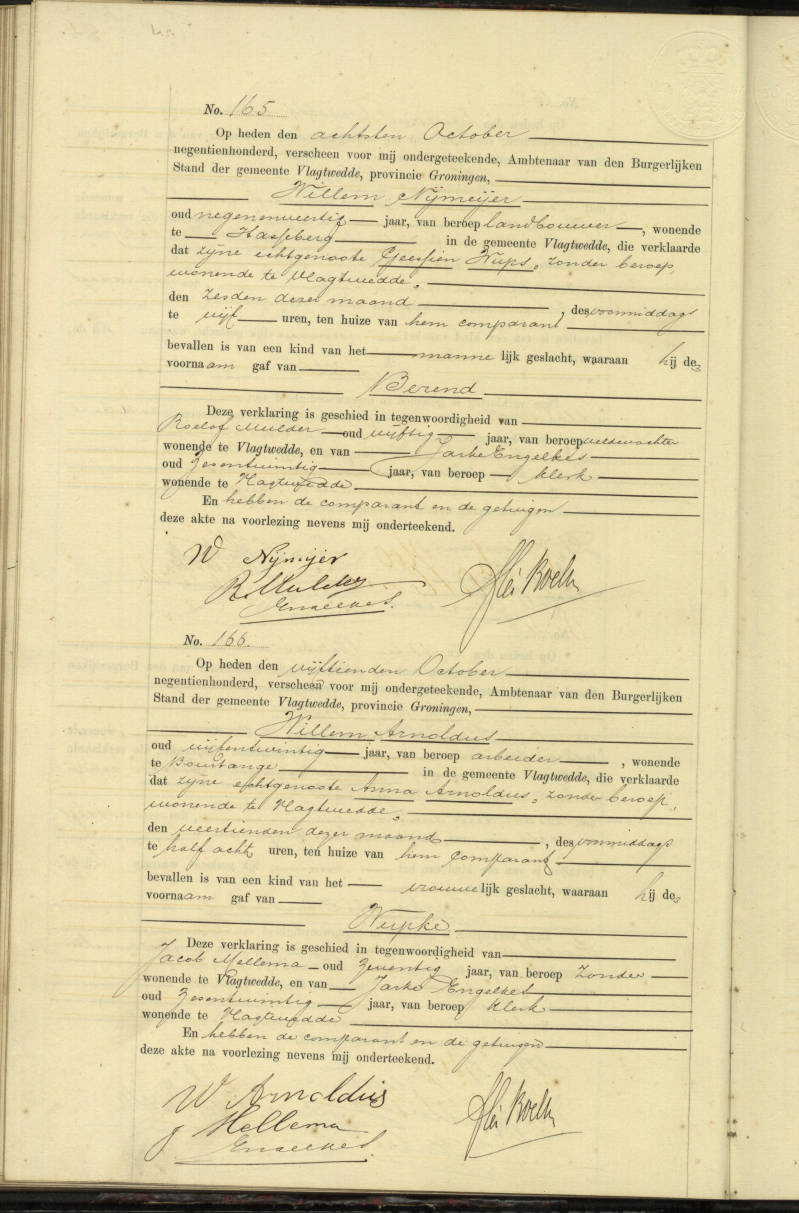 No. 165
Op heden den achtsten October
negentienhonderd, verscheen voor mij ondergeteekende, Ambtenaar van den Burgerlijken
Stand der gemeente Vlagtwedde, provincie Groningen,
Willem Nijmeijer
oud negenenveertig jaar, van beroep landbouwer, wonende
te Hasseberg in de gemeente Vlagtwedde, die verklaarde
dat zijne echtgenoote Geessien Wups, zonder beroep,
wonende te Vlagtwedde,
den zesden dezer maand, des voormiddags
te vijf uren, ten huize van hem comparant
bevallen is van een kind van het mannelijk geslacht, waaraan hij de
voornaam gaf van
Berend
Deze verklaring is geschied in tegenwoordigheid van
Roelof Mulder oud vijftig jaar, van beroep veldwachter
wonende te Vlagtwedde, en van Jarko Engelkes
oud zesentwintig jaar, van beroep klerk
wonende te Vlagtwedde
En hebben de comparant en de getuigen
deze akte na voorlezing nevens mij onderteekend.
W Nijmijer
R Mulder
Engelkes.
No. 166.
Op heden den vijftienden October
negentienhonderd, verscheen voor mij ondergeteekende, Ambtenaar van den Burgerlijken
Stand der gemeente Vlagtwedde, provincie Groningen,
Willem Arnoldus
oud vijfentwintig jaar, van beroep arbeider, wonende
te Bourtange in de gemeente Vlagtwedde, die verklaarde
dat zijne echtgenoote Anna Arnoldus, zonder beroep,
wonende te Vlagtwedde,
den veertienden dezer maand, des voormiddags
te half acht uren, ten huize van hem comparant
bevallen is van een kind van het vrouwelijk geslacht, waaraan hij de
voornaam gaf van
Wupke
Deze verklaring is geschied in tegenwoordigheid van
Jacob Mellema oud zeventig jaar, van beroep zonder
wonende te Vlagtwedde, en van Jarko Engelkes
oud zesentwintig jaar, van beroep klerk
wonende te Vlagtwedde
En hebben de comparant en de getuigen
deze akte na voorlezing nevens mij onderteekend.
W Arnoldus
J Mellema
Engelkes.